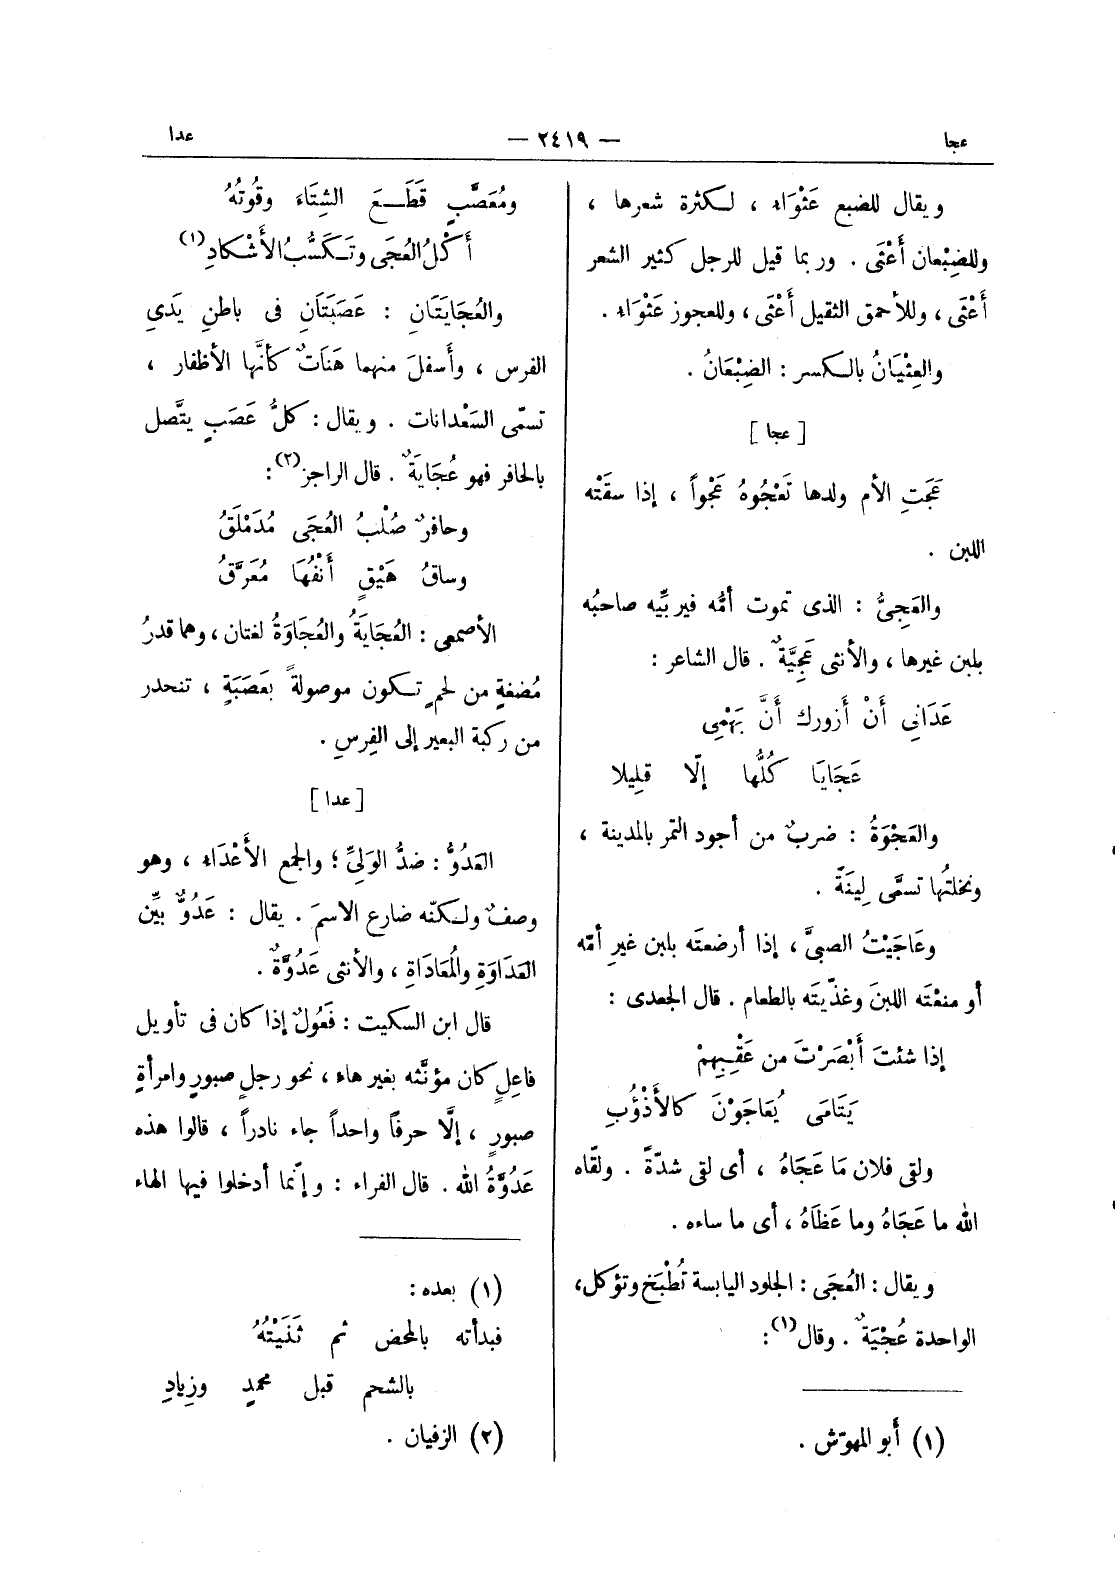 عجا — ٢٤١٩ — عدا
ويقال للضبع عَثْوَاء ، لكثرة شعرها ،
وللضِبْعان أَعْثَى . وربما قيل للرجل كثير الشعر
أَعْثَى ، وللأحمق الثقيل أَعْثَى ، وللعجوز عَثْوَاء .
والعِثْيَانُ بالكسر : الضِبْعَانُ .
[ عجا ]
عَجَتِ الأم ولدها تَعْجُوهُ عَجْواً ، إذا سقَتْه
اللبن .
والعَجِىُّ : الذى تموت أمُّه فيربِّيه صاحبُه
بلبن غيرها ، والأنثى عَجِيَّةٌ . قال الشاعر :
عَدَانِى أَنْ أزورك أَنَّ بَهْمِى
عَجَايَا كُلُّها إلّا قليلا
والعَجْوَةُ : ضربٌ من أجود التمر بالمدينة ،
ونخلتُها تسمَّى لِينَةً .
وعَاجَيْتُ الصبىَّ ، إذا أرضعتَه بلبن غيرِ أمّه
أو منعْتَه اللبنَ وغذّيتَه بالطعام . قال الجعدى :
إذا شئتَ أَبْصَرْتَ من عَقْبِهِمْ
يَتَامَى يُعَاجَوْنَ كالأَذْؤُبِ
ولقى فلان مَا عَجَاهُ ، أى لقى شدّةً . ولقّاه
الله ما عَجَاهُ وما عَظَاهُ ، أى ما ساءه .
ويقال : العُجَى : الجلود اليابسة تُطْبَخ وتؤكل،
الواحدة عُجْيَةٌ . وقال(١) :
(١) أبو المهوّش .
ومُعَصَّبٍ قَطَعَ الشِتَاءَ وقُوتُهُ
أَكْلُ العُجَى وتَكَسُّبُ الأَشْكَادِ(١)
والعُجَايَتَانِ : عَصَبَتَانِ فى باطنِ يَدَىِ
الفرس ، وأَسفلَ منهما هَنَاتٌ كأنَّها الأظفار ،
تسمّى السَعْدانات . ويقال : كلُّ عَصَبٍ يتَّصل
بالحافر فهو عُجَايَةٌ . قال الراجز(٢) :
وحافرٌ صُلْبُ العُجَى مُدَمْلَقُ
وساقُ هَيْقٍ أَنْفُهَا مُعَرَّقُ
الأصمعى : العُجَايَةُ والعُجَاوَةُ لغتان ، وهما قدرُ
مُضغةٍ من لحمٍ تكون موصولةً بعَصَبَةٍ ، تنحدر
من ركبة البعير إلى الفِرسِ .
[ عدا ]
العَدُوُّ : ضدُّ الوَلِىِّ ؛ والجمع الأَعْدَاء ، وهو
وصفٌ ولكنّه ضارع الاسمَ . يقال : عَدُوٌّ بيِّن
العَدَاوَةِ والمُعَادَاةِ ، والأنثى عَدُوَّةٌ .
قال ابن السكيت : فَعُولٌ إذا كان فى تأويل
فاعِلٍ كان مؤنَّثه بغير هاء ، نحو رجلٍ صبورٍ وامرأةٍ
صبورٍ ، إلَّا حرفاً واحداً جاء نادراً ، قالوا هذه
عَدُوَّةُ الله . قال الفراء : وإنّما أدخلوا فيها الهاء
(١) بعده :
فبدأته بالمحض ثم ثَنَيْتُهُ
بالشحم قبل محمدٍ وزِيادِ
(٢) الزفيان .